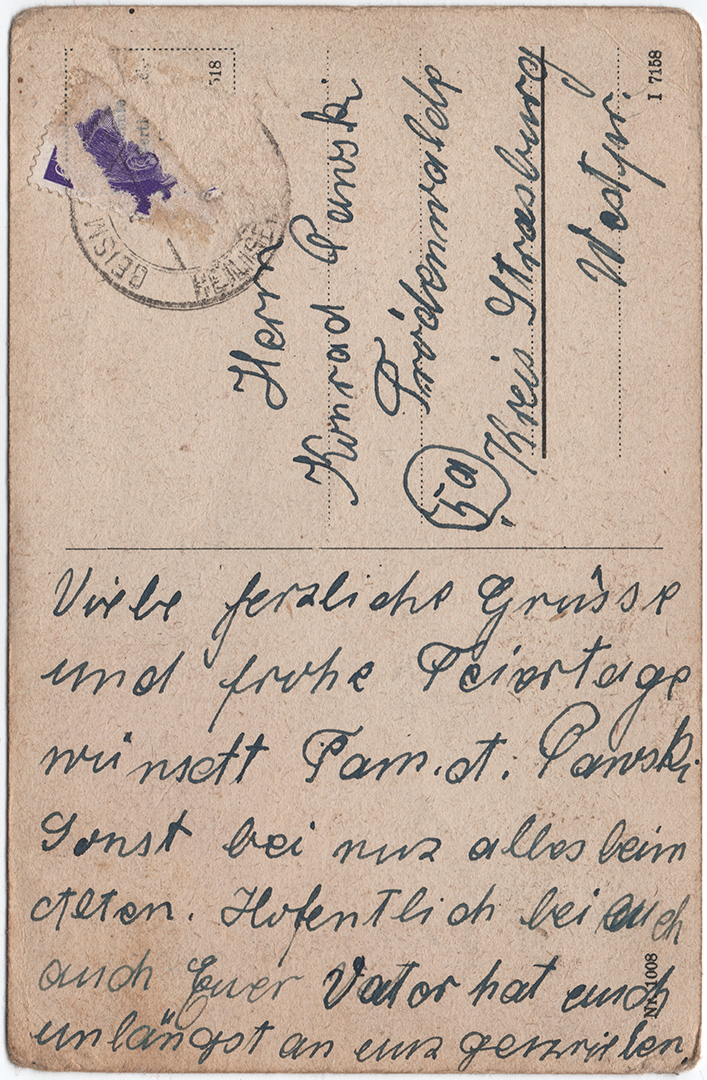 518
I 7158
BEISM
Herrn
Konrad Pawski
Frödenwalde
5a
Kreis Strasburg
Westpr.
Viele herzliche Grüsse
und frohe Feiertage
wünscht Fam. A. Pawski.
Sonst bei nuz alles beim
Alten. Hofentlich bei euch
auch Euer Vater hat auch
unlängst an unz geszrieben.
Nr. 1008